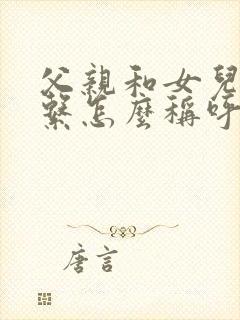 父親和女兒
繫怎麼稱呼
唐言